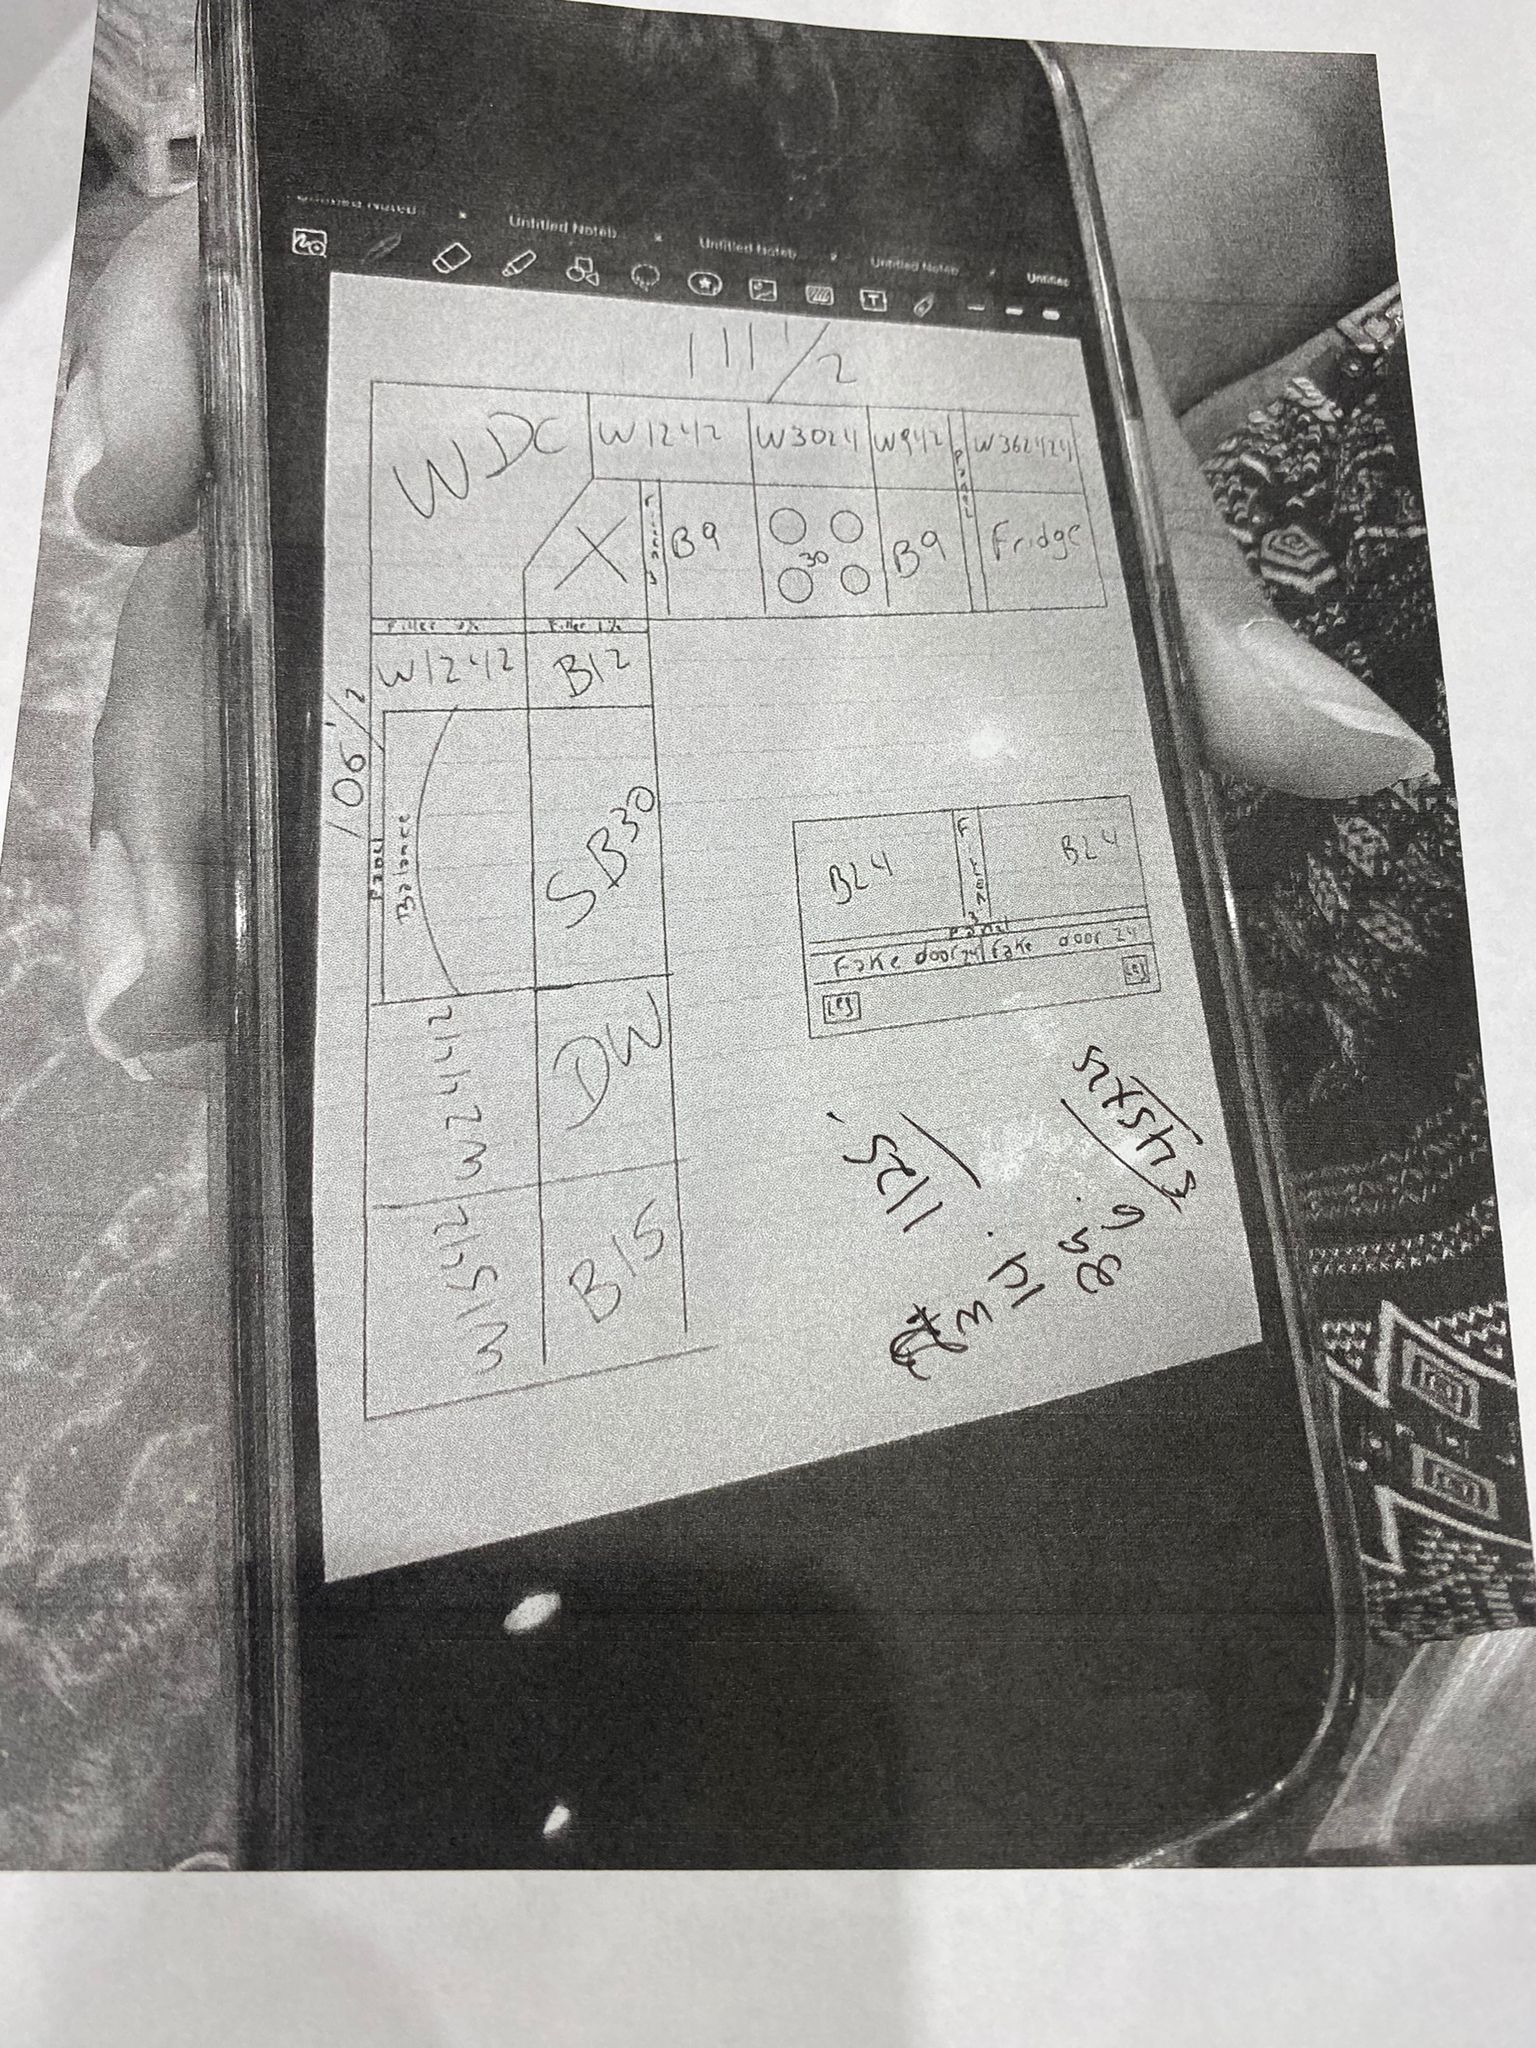 Untitled Noteb
Untitled Noteb
Untitled Noteb
Untitled
T
111 1/2
WDC
W1242
W3024
W942
Panel
W362424
X
Filler 3
B9
30
B9
Fridge
Filler
Filler 1½
W1242
B12
106 1/2
Panel
Balance
SB30
W2442
DW
W1542
B15
B24
Filler 3
B24
Panel
Fake door 24
Fake door 24
Leg
Leg
1125